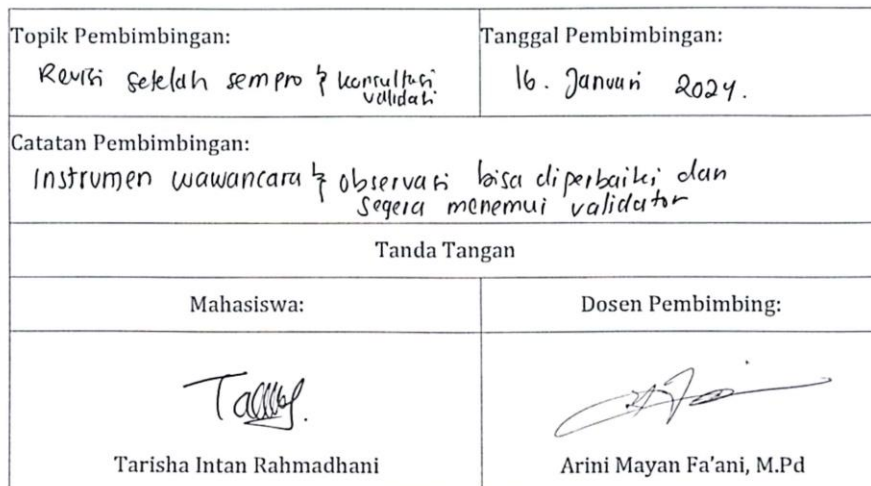 Topik Pembimbingan:
Revisi setelah sempro & konsultasi
validasi
Tanggal Pembimbingan:
16. Januari 2024.
Catatan Pembimbingan:
Instrumen wawancara & observasi bisa diperbaiki dan
segera menemui validator
Tanda Tangan
Mahasiswa:
Dosen Pembimbing:
Tarisha Intan Rahmadhani
Arini Mayan Fa'ani, M.Pd